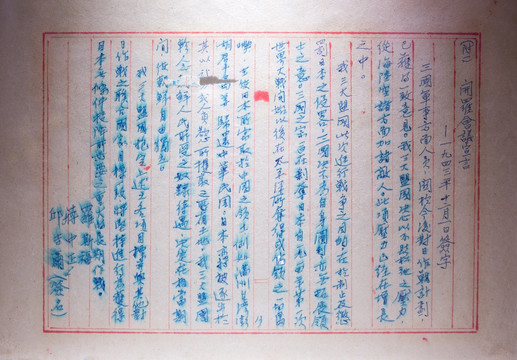 開羅會議宣言
—一九四三年十二月一日簽字
三國軍事方面人員,關於今後對日作戰計劃,
已獲得一致意見。我三大盟國決心以不鬆弛之壓力,
從海陸空諸方面加諸敵人,此項壓力已經在增長
之中。
我三大盟國此次進行戰爭之目的,在於制止及懲
罰日本之侵略。三國決不為自身圖利,亦無拓展領
土之意。三國之宗旨,在剝奪日本自從一九一四年第一次
世界大戰開始以後在太平洋所奪得或佔領之一切島
嶼;在使日本所竊取於中國之領土,例如滿洲台灣
澎湖群島等,歸還中華民國;日本亦將被逐出於
其以武力或貪慾所攫取之所有土地。我三大盟國
軫念朝鮮人民所受之奴隸待遇,決定在相當期
間,使朝鮮自由獨立。
我三大盟國抱定上述之各項目標,並與其他對
日作戰之聯合國家目標一致,將堅持進行為獲得
日本無條件投降所必要之重大的長期作戰。
羅斯福
蔣中正
邱吉爾(簽名)